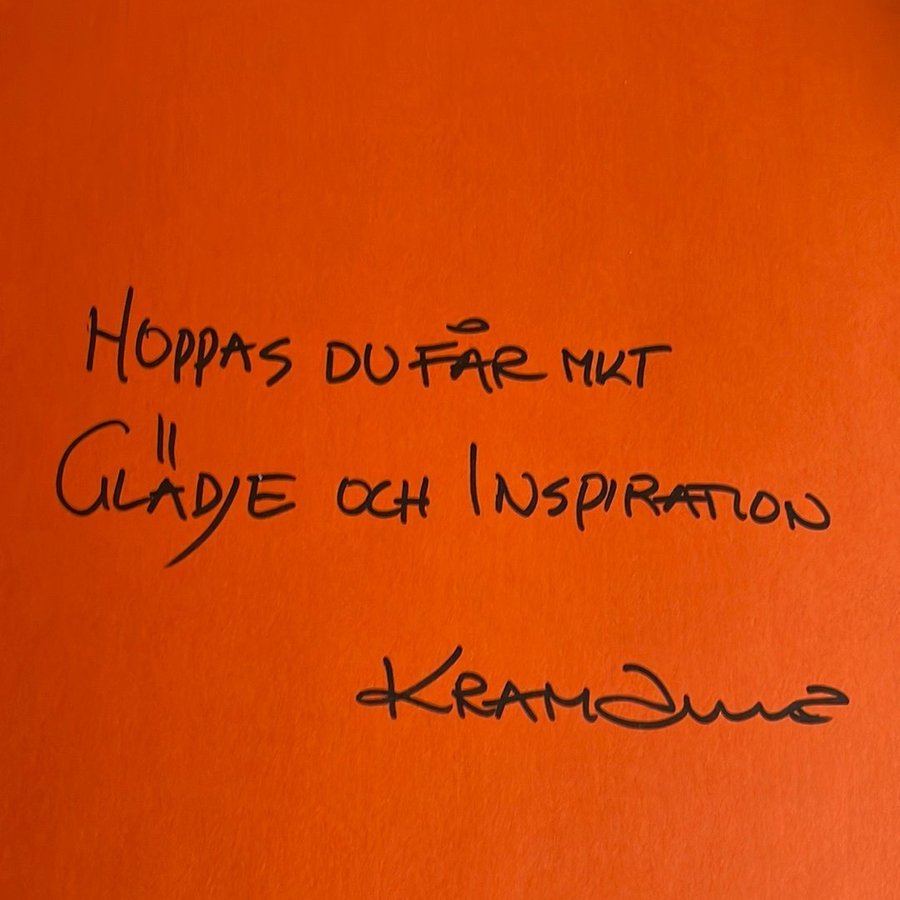 HOPPAS DU FÅR MKT
GLÄDJE OCH INSPIRATION
KRAM